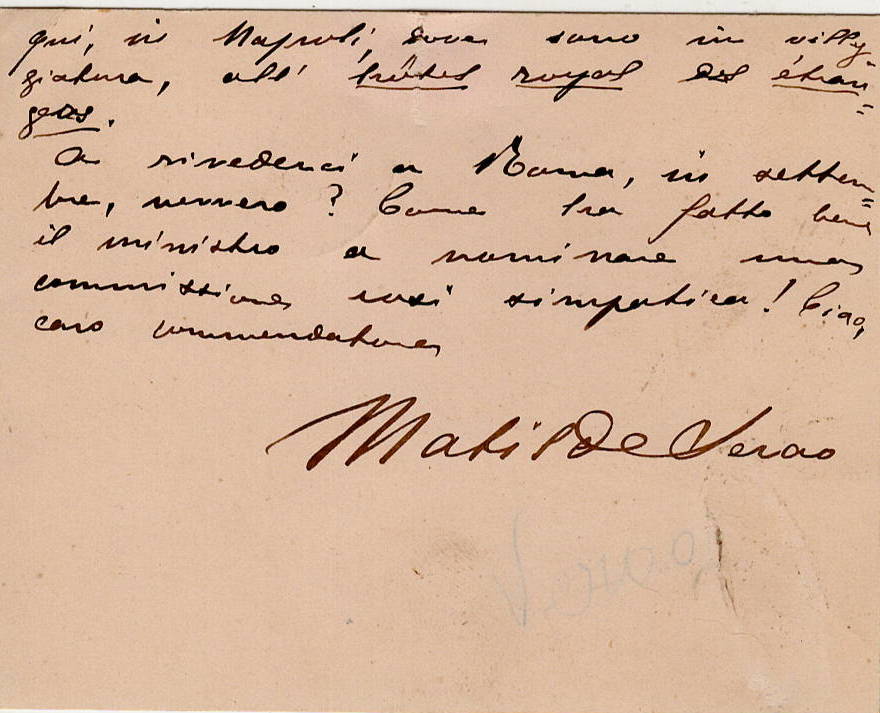 qui, in Napoli, dove sono in villeg
giatura, all' hôtel royal des étran=
gers.
A rivederci a Roma, in settem=
bre, nevvero? Come ha fatto bene
il ministro a nominare una
commissione così simpatica! Ciao,
caro commendatore
Matilde Serao